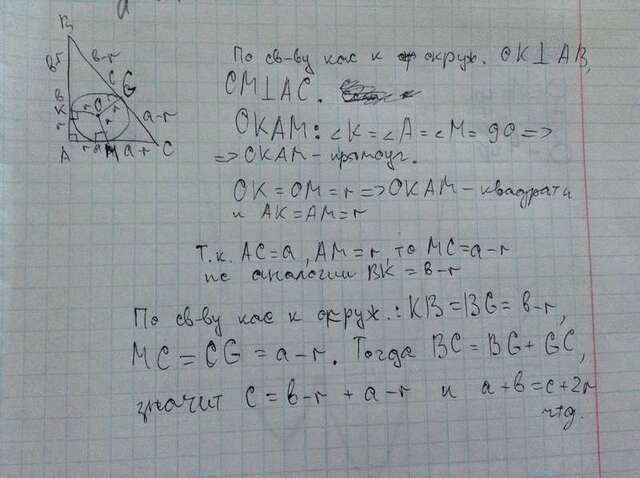 B
b-r
b-r
C G
b
r
O
a-r
K
r
r
A r a M a-r C
По св-ву кас к окруж. OK⊥AB,
OM⊥AC.
OKAM: ∠K=∠A=∠M=90 =>
=> OKAM – прямоуг.
OK=OM=r => OKAM – квадрат
и AK=AM=r
Т.к. AC=a, AM=r, то MC=a-r
по аналогии BK=b-r
По св-ву кас к окруж.: KB=BG=b-r,
MC=CG=a-r. Тогда BC=BG+GC,
значит c=b-r+a-r и a+b=c+2r
чтд.